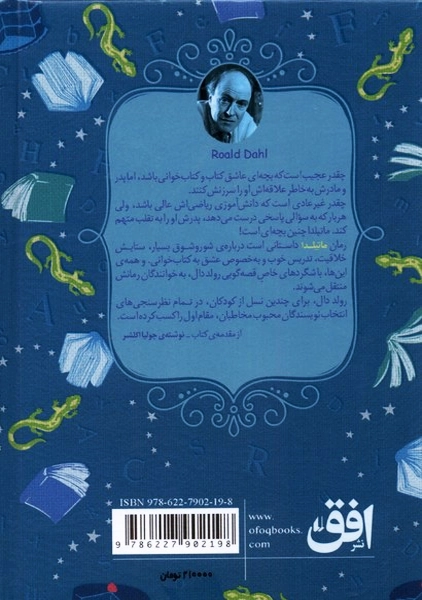 Roald Dahl
چقدر عجیب است که بچه‌ای عاشق کتاب و کتاب‌خوانی باشد، اما پدر
و مادرش به خاطر علاقه‌اش او را سرزنش کنند.
چقدر غیرعادی است که دانش‌آموزی ریاضی‌اش عالی باشد، ولی
هربار که به سؤالی پاسخی درست می‌دهد، پدرش او را به تقلب متهم
کند. ماتیلدا چنین بچه‌ای است!
رمان ماتیلدا داستانی است درباره‌ی شور و شوق بسیار، ستایش
خلاقیت، تدریس خوب و به‌خصوص عشق به کتاب‌خوانی. و همه‌ی
این‌ها، با شگردهای خاص قصه‌گویی رولد دال، به خوانندگان رمانش
منتقل می‌شوند.
رولد دال، برای چندین نسل از کودکان، در تمام نظرسنجی‌های
انتخاب نویسندگان محبوب مخاطبان، مقام اول را کسب کرده است.
از مقدمه‌ی کتاب ــ نوشته‌ی جولیا اکلشر
ISBN 978-622-7902-19-8
9 786227 902198
۲۱۰۰۰۰ تومان
www.
ofoqbooks.
com
نشر افق